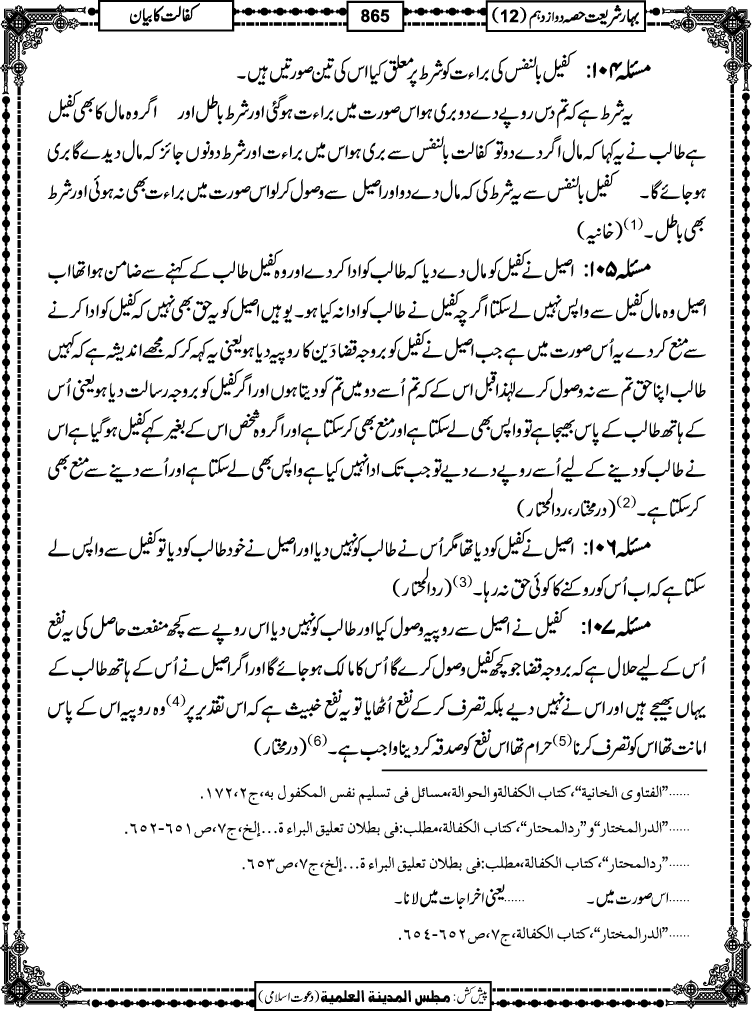 بہارِ شریعت حصہ دوازدہم (12)
865
کفالت کا بیان
مسئلہ ۱۰۴: کفیل بالنفس کی براءت کو شرط پر معلق کیا اس کی تین صورتیں ہیں۔
یہ شرط ہے کہ تم دس روپے دے دو بری ہو اس صورت میں براءت ہوگئی اور شرط باطل اور اگر وہ مال کا بھی کفیل
ہے طالب نے یہ کہا کہ مال اگر دے دو تو کفالت بالنفس سے بری ہو اس میں براءت اور شرط دونوں جائز کہ مال دیدے گا بری
ہو جائے گا۔ کفیل بالنفس سے یہ شرط کی کہ مال دے دو اور اصیل سے وصول کر لو اس صورت میں براءت بھی نہ ہوئی اور شرط
بھی باطل۔(1) (خانیہ)
مسئلہ ۱۰۵: اصیل نے کفیل کو مال دے دیا کہ طالب کو ادا کر دے اور وہ کفیل طالب کے کہنے سے ضامن ہوا تھا اب
اصیل وہ مال کفیل سے واپس نہیں لے سکتا اگرچہ کفیل نے طالب کو ادا نہ کیا ہو۔ یوہیں اصیل کو یہ حق بھی نہیں کہ کفیل کو ادا کرنے
سے منع کر دے یہ اُس صورت میں ہے جب اصیل نے کفیل کو بروجہ قضا دَین کا روپیہ دیا ہو یعنی یہ کہہ کر کہ مجھے اندیشہ ہے کہ کہیں
طالب اپنا حق تم سے نہ وصول کرے لہٰذا قبل اس کے کہ تم اُسے دو میں تم کو دیتا ہوں اور اگر کفیل کو بروجہ رسالت دیا ہو یعنی اُس
کے ہاتھ طالب کے پاس بھیجا ہے تو واپس بھی لے سکتا ہے اور منع بھی کر سکتا ہے اور اگر وہ شخص اس کے بغیر کہے کفیل ہو گیا ہے اس
نے طالب کو دینے کے لیے اُسے روپے دے دیے تو جب تک ادا نہیں کیا ہے واپس بھی لے سکتا ہے اور اُسے دینے سے منع بھی
کر سکتا ہے۔(2) (درمختار، ردالمحتار)
مسئلہ ۱۰۶: اصیل نے کفیل کو دیا تھا مگر اُس نے طالب کو نہیں دیا اور اصیل نے خود طالب کو دیا تو کفیل سے واپس لے
سکتا ہے کہ اب اُس کو روکنے کا کوئی حق نہ رہا۔(3) (ردالمحتار)
مسئلہ ۱۰۷: کفیل نے اصیل سے روپیہ وصول کیا اور طالب کو نہیں دیا اس روپے سے کچھ منفعت حاصل کی یہ نفع
اُس کے لیے حلال ہے کہ بروجہ قضا جو کچھ کفیل وصول کرے گا اُس کا مالک ہو جائے گا اور اگر اصیل نے اُس کے ہاتھ طالب کے
یہاں بھیجے ہیں اور اس نے نہیں دیے بلکہ تصرف کر کے نفع اُٹھایا تو یہ نفع خبیث ہے کہ اس تقدیر پر(4) وہ روپیہ اس کے پاس
امانت تھا اس کو تصرف کرنا(5) حرام تھا اس نفع کو صدقہ کر دینا واجب ہے۔(6) (درمختار)
......”الفتاوی الخانیة“، کتاب الکفالة والحوالة، مسائل فی تسلیم نفس المکفول به، ج۲، ۱۷۲.
......”الدرالمختار“ و”ردالمحتار“، کتاب الکفالة، مطلب: فی بطلان تعلیق البراءة...إلخ، ج۷، ص۶۵۱-۶۵۲.
......”ردالمحتار“، کتاب الکفالة، مطلب: فی بطلان تعلیق البراءة...إلخ، ج۷، ص۶۵۳.
......اس صورت میں۔ ......یعنی اخراجات میں لانا۔
......”الدرالمختار“، کتاب الکفالة، ج۷، ص۶۵۲-۶۵۴.
پیش کش: مجلس المدینة العلمیة (دعوت اسلامی)